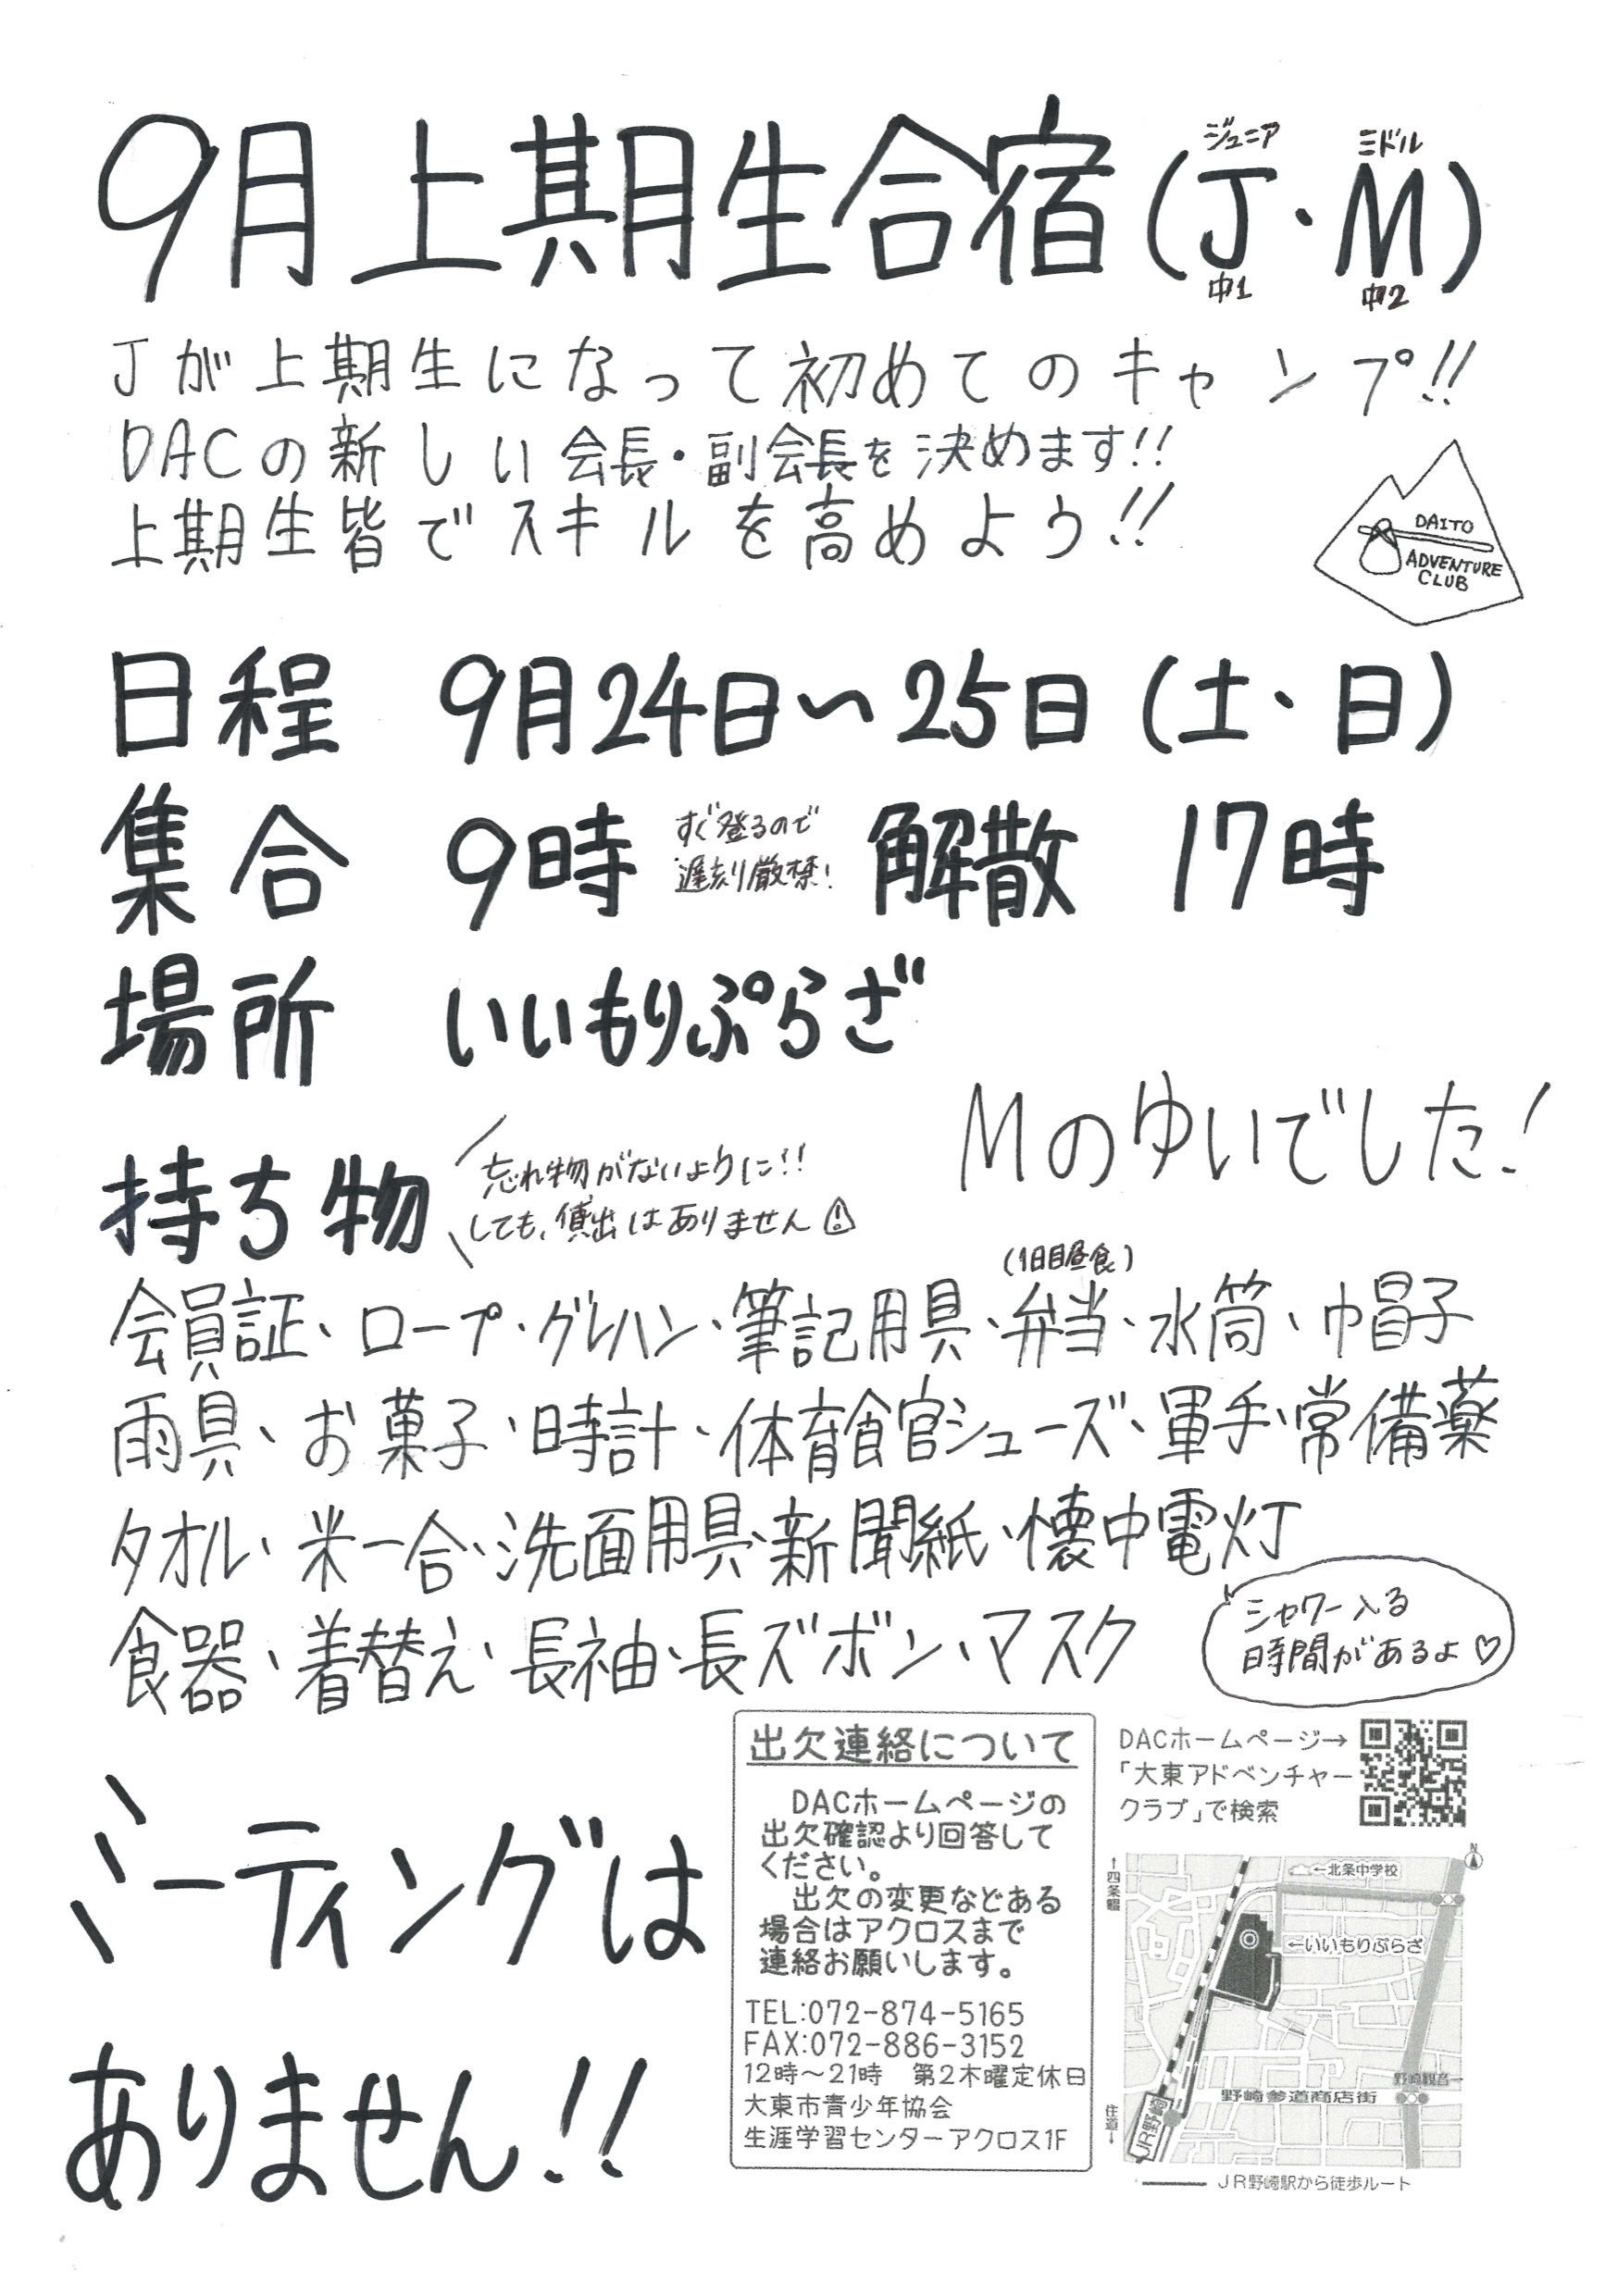 9月上期生合宿(J・M)
ジュニア ミドル
中1 中2
Jが上期生になって初めてのキャンプ!!
DACの新しい会長・副会長を決めます!!
上期生皆でスキルを高めよう!!
DAITO
ADVENTURE
CLUB
日程 9月24日〜25日(土、日)
集合 9時 すぐ登るので遅刻厳禁! 解散 17時
場所 いいもりぷらざ
Mのゆいでした!
持ち物
忘れ物がないように!!
しても、貸出はありません
(1日目昼食)
会員証、ロープ・グレハン、筆記用具、弁当、水筒、巾帽子
雨具、お菓子、時計、体育館シューズ、軍手、常備薬
タオル、米一合、洗面用具、新聞紙、懐中電灯
食器、着替え、長袖、長ズボン、マスク
シャワー入る
時間があるよ♡
ミーティングは
ありません!!
出欠連絡について
DACホームページの
出欠確認より回答して
ください。
出欠の変更などある
場合はアクロスまで
連絡お願いします。
TEL:072-874-5165
FAX:072-886-3152
12時〜21時 第2木曜定休日
大東市青少年協会
生涯学習センターアクロス1F
DACホームページ→
「大東アドベンチャー
クラブ」で検索
N
←北条中学校
↑四条畷
←いいもりぷらざ
野崎観音→
野崎参道商店街
住道↓
JR野崎
JR野崎駅から徒歩ルート